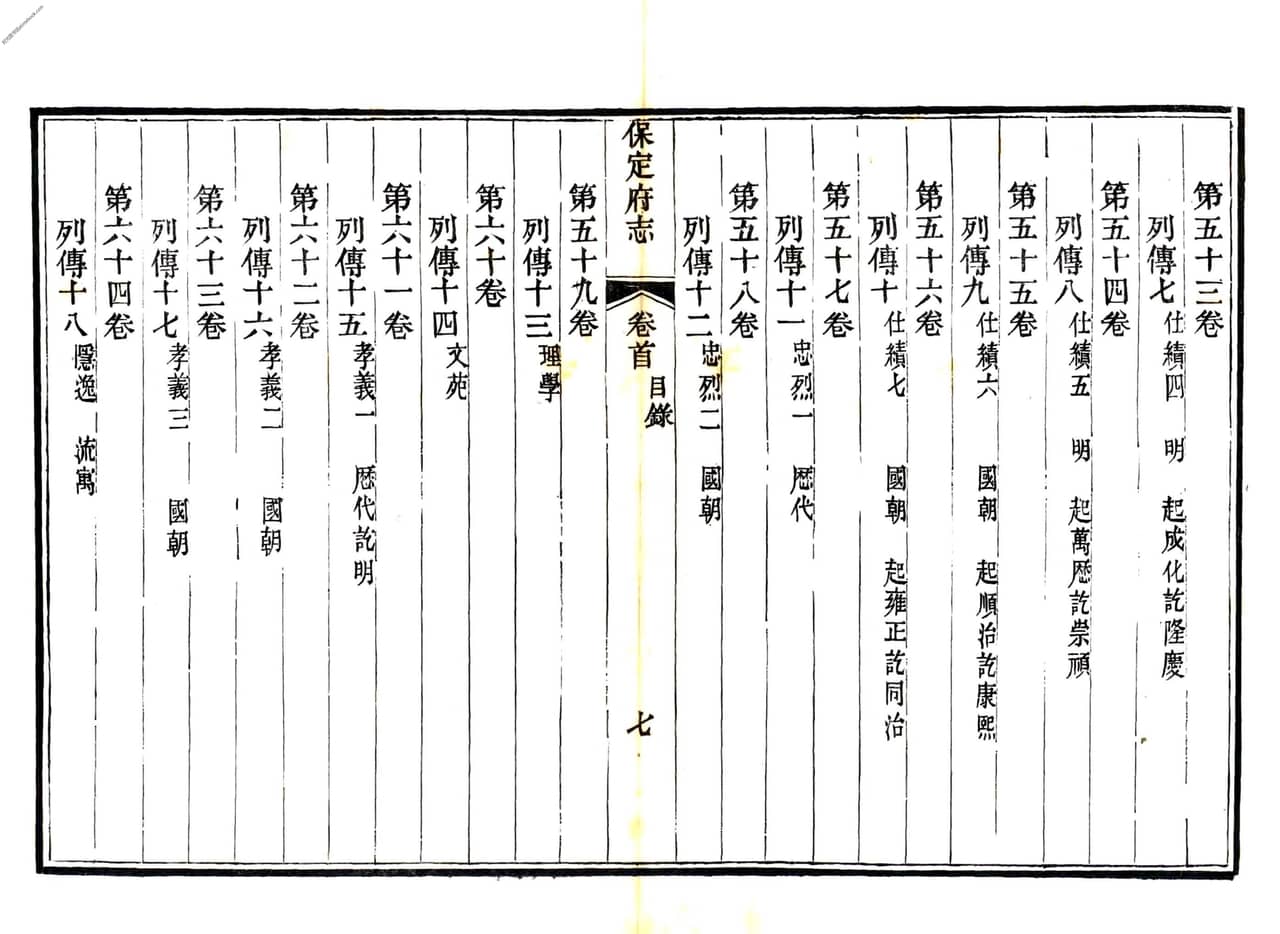 第五十三卷
列傳七 仕績四 明 起成化訖隆慶
第五十四卷
列傳八 仕績五 明 起萬歷訖崇禎
第五十五卷
列傳九 仕績六 國朝 起順治訖康熙
第五十六卷
列傳十 仕績七 國朝 起雍正訖同治
第五十七卷
列傳十一 忠烈一 歷代
第五十八卷
列傳十二 忠烈二 國朝
保定府志 卷首 目錄 七
第五十九卷
列傳十三 理學
第六十卷
列傳十四 文苑
第六十一卷
列傳十五 孝義一 歷代訖明
第六十二卷
列傳十六 孝義二 國朝
第六十三卷
列傳十七 孝義三 國朝
第六十四卷
列傳十八 隱逸 流寓